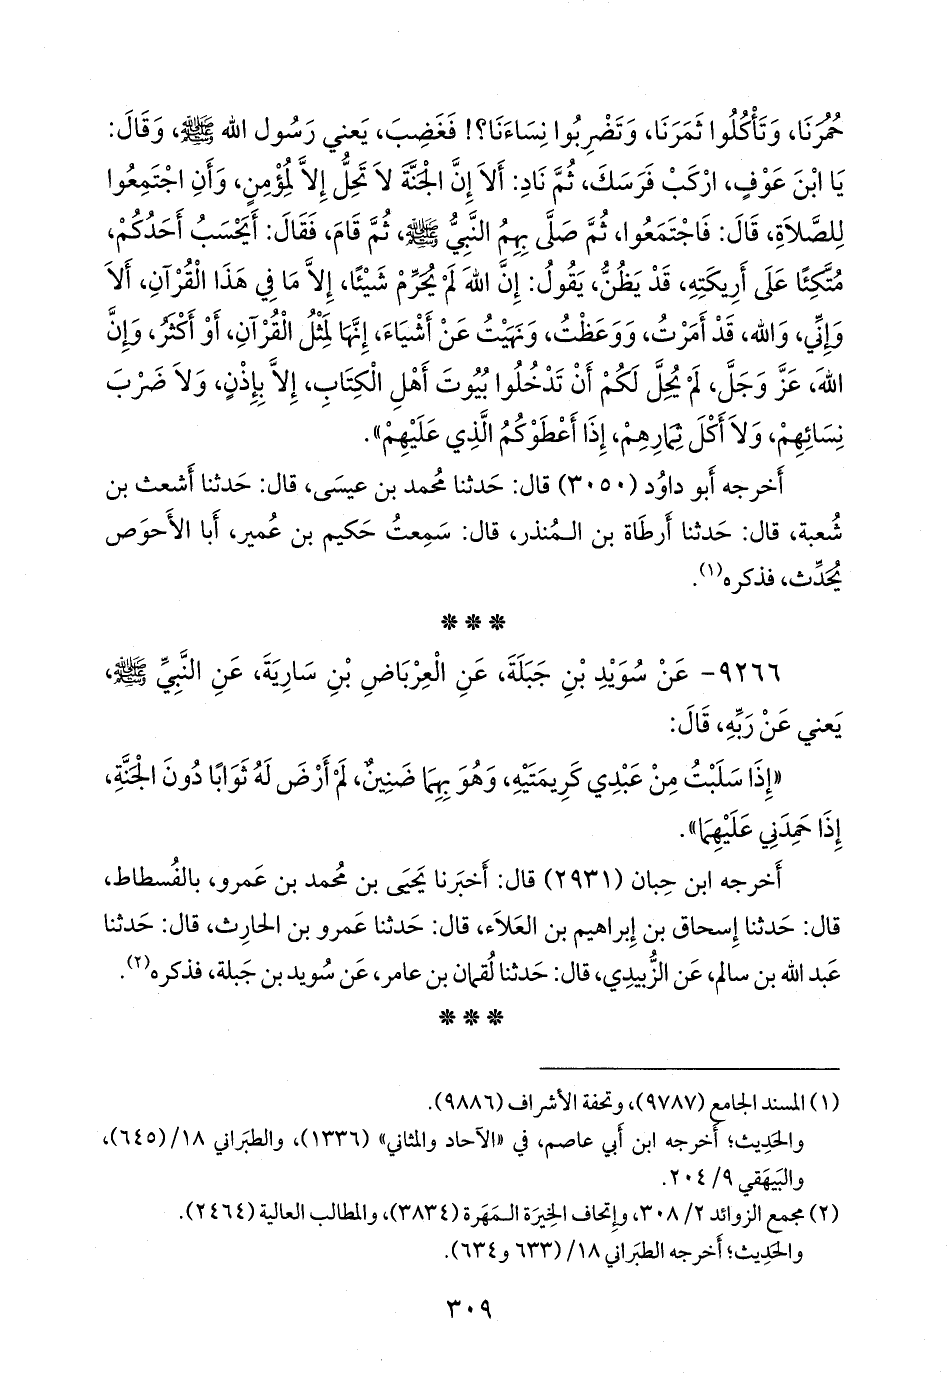 حُمُرَنَا، وَتَأْكُلُوا ثَمَرَنَا، وَتَضْرِبُوا نِسَاءَنَا؟! فَغَضِبَ، يَعني رَسُول الله ﷺ، وَقَالَ:
يَا ابْنَ عَوْفٍ، ارْكَبْ فَرَسَكَ، ثُمَّ نَادِ: أَلاَ إِنَّ الْجَنَّةَ لاَ تَحِلُّ إِلاَّ لِمُؤْمِنٍ، وَأَنِ اجْتَمِعُوا
لِلصَّلاَةِ، قَالَ: فَاجْتَمَعُوا، ثُمَّ صَلَّى بِهِمُ النَّبِيُّ ﷺ، ثُمَّ قَامَ، فَقَالَ: أَيَحْسَبُ أَحَدُكُمْ،
مُتَّكِئًا عَلَى أَرِيكَتِهِ، قَدْ يَظُنُّ، يَقُولُ: إِنَّ اللهَ لَمْ يُحَرِّمْ شَيْئًا، إِلاَّ مَا فِي هَذَا الْقُرْآنِ، أَلاَ
وَإِنِّي، وَالله، قَدْ أَمَرْتُ، وَوَعَظْتُ، وَنَهَيْتُ عَنْ أَشْيَاءَ، إِنَّهَا لَمِثْلُ الْقُرْآنِ، أَوْ أَكْثَرُ، وَإِنَّ
اللهَ، عَزَّ وَجَلَّ، لَمْ يُحِلَّ لَكُمْ أَنْ تَدْخُلُوا بُيُوتَ أَهْلِ الْكِتَابِ، إِلاَّ بِإِذْنٍ، وَلاَ ضَرْبَ
نِسَائِهِمْ، وَلاَ أَكْلَ ثِمَارِهِمْ، إِذَا أَعْطَوْكُمُ الَّذِي عَلَيْهِمْ».
أَخرجه أَبو داوُد (٣٠٥٠) قال: حَدثنا مُحمد بن عيسَى، قال: حَدثنا أَشعث بن
شُعبة، قال: حَدثنا أَرطَاة بن الـمُنذر، قال: سَمِعتُ حَكيم بن عُمير، أَبا الأَحوَص
يُحَدِّث، فذكره(١).
* * *
٩٢٦٦- عَنْ سُوَيْدِ بْنِ جَبَلَةَ، عَنِ الْعِرْبَاضِ بْنِ سَارِيَةَ، عَنِ النَّبِيِّ ﷺ،
يَعني عَنْ رَبِّهِ، قَالَ:
«إِذَا سَلَبْتُ مِنْ عَبْدِي كَرِيمَتَيْهِ، وَهُوَ بِهِمَا ضَنِينٌ، لَمْ أَرْضَ لَهُ ثَوَابًا دُونَ الْجَنَّةِ،
إِذَا حَمِدَنِي عَلَيْهِمَا».
أَخرجه ابن حِبان (٢٩٣١) قال: أَخبَرنا يَحيَى بن مُحمد بن عَمرو، بالفُسطاط،
قال: حَدثنا إِسحاق بن إِبراهيم بن العَلاَء، قال: حَدثنا عَمرو بن الحارِث، قال: حَدثنا
عَبد الله بن سالم، عَن الزُّبيدي، قال: حَدثنا لُقمان بن عامر، عَن سُويد بن جَبلة، فذكره(٢).
* * *
(١) المسند الجامع (٩٧٨٧)، وتحفة الأشراف (٩٨٨٦).
والحَدِيث؛ أَخرجه ابن أَبي عاصم، في «الآحاد والمثاني» (١٣٣٦)، والطبَراني ١٨/ (٦٤٥)،
والبَيهَقي ٩/ ٢٠٤.
(٢) مجمع الزوائد ٢/ ٣٠٨، وإتحاف الخِيرَة الـمَهَرة (٣٨٣٤)، والمطالب العالية (٢٤٦٤).
والحَدِيث؛ أَخرجه الطبَراني ١٨/ (٦٣٣ و٦٣٤).
٣٠٩